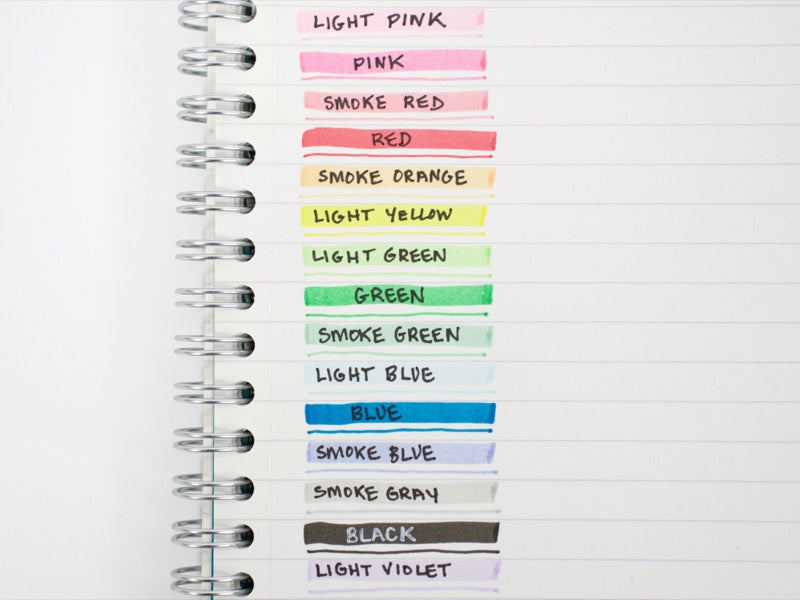 LIGHT PINK
PINK
SMOKE RED
RED
SMOKE ORANGE
LIGHT YELLOW
LIGHT GREEN
GREEN
SMOKE GREEN
LIGHT BLUE
BLUE
SMOKE BLUE
SMOKE GRAY
BLACK
LIGHT VIOLET